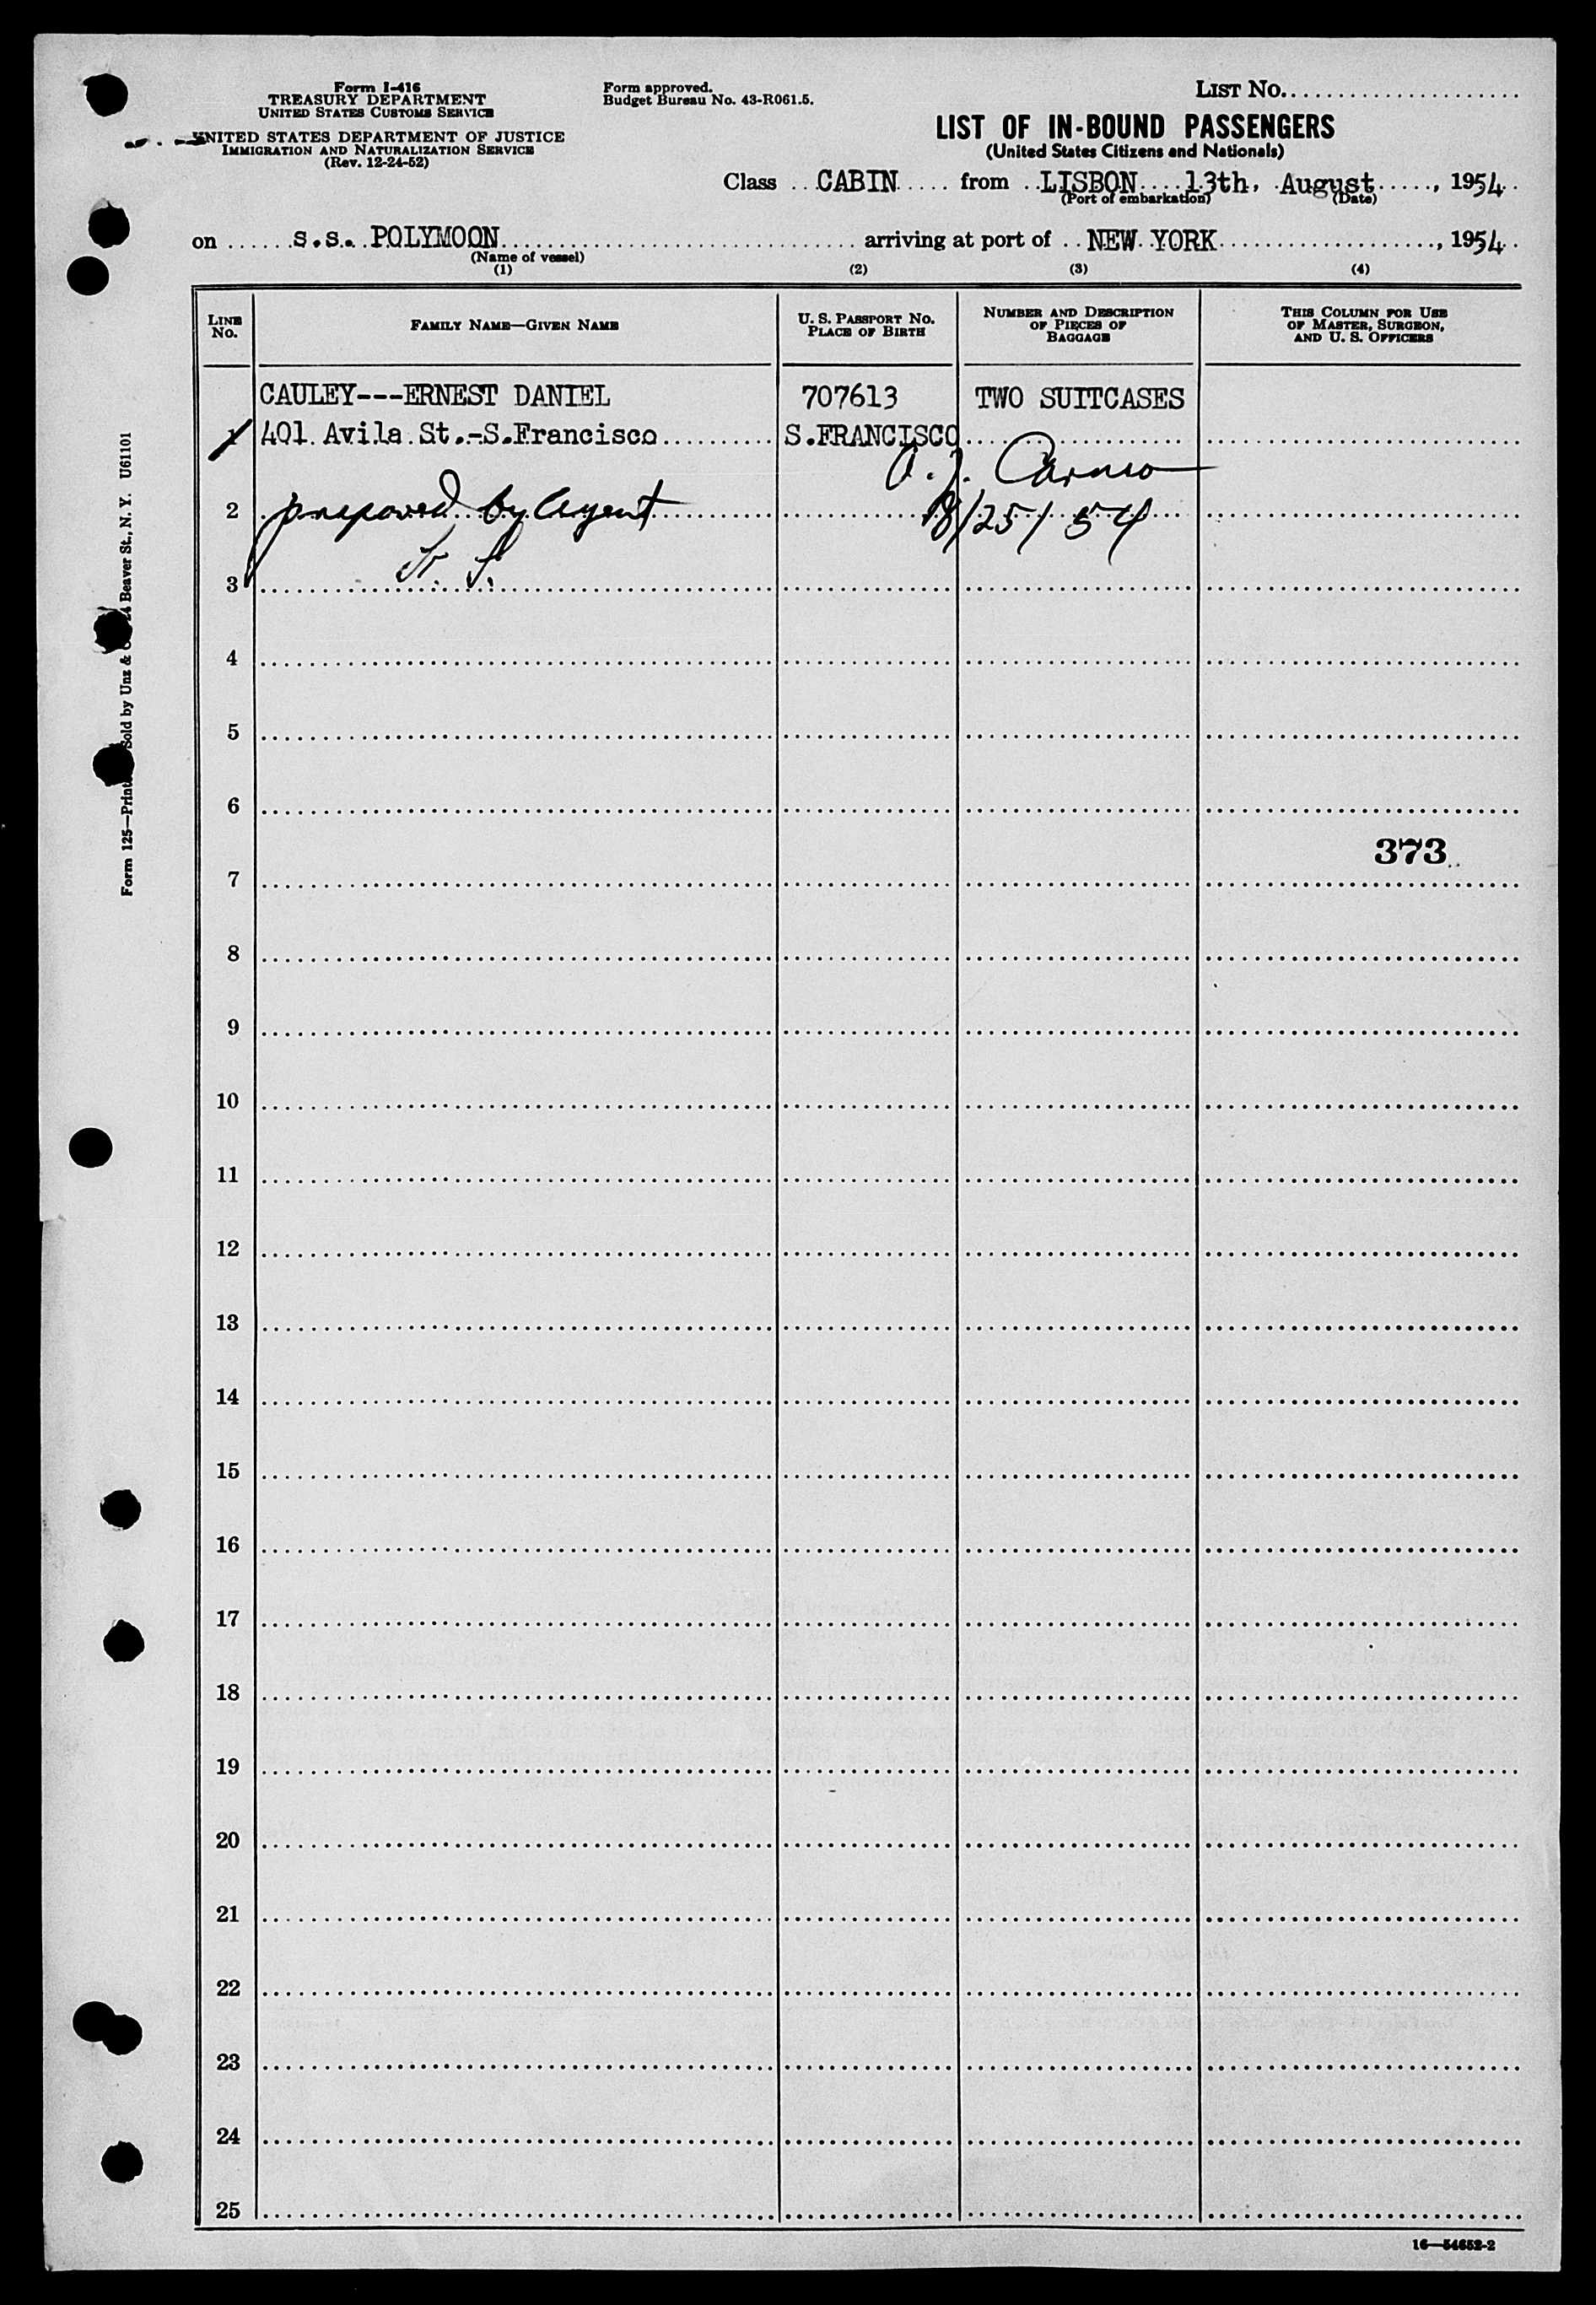 Form I-416
TREASURY DEPARTMENT
UNITED STATES CUSTOMS SERVICE
UNITED STATES DEPARTMENT OF JUSTICE
IMMIGRATION AND NATURALIZATION SERVICE
(Rev. 12-24-52)
Form approved.
Budget Bureau No. 43-R061.5.
LIST NO.
LIST OF IN-BOUND PASSENGERS
(United States Citizens and Nationals)
Class CABIN from LISBON 13th, August, 1954
(Port of embarkation) (Date)
on S.S. POLYMOON arriving at port of NEW YORK, 1954
(Name of vessel)
(1) (2) (3) (4)
LINE NO.
FAMILY NAME—GIVEN NAME
U. S. PASSPORT NO.
PLACE OF BIRTH
NUMBER AND DESCRIPTION
OF PIECES OF
BAGGAGE
THIS COLUMN FOR USE
OF MASTER, SURGEON,
AND U. S. OFFICERS
CAULEY---ERNEST DANIEL 707613 TWO SUITCASES
1 401 Avila St.-S.Francisco S.FRANCISCO
A. J. Caruso
2 prepared by Agent 8/25/54
3
4
5
6
373
7
8
9
10
11
12
13
14
15
16
17
18
19
20
21
22
23
24
25
16—54652-2
Form 125—Printed Sold by Unz & Co. 24 Beaver St., N. Y. U61101